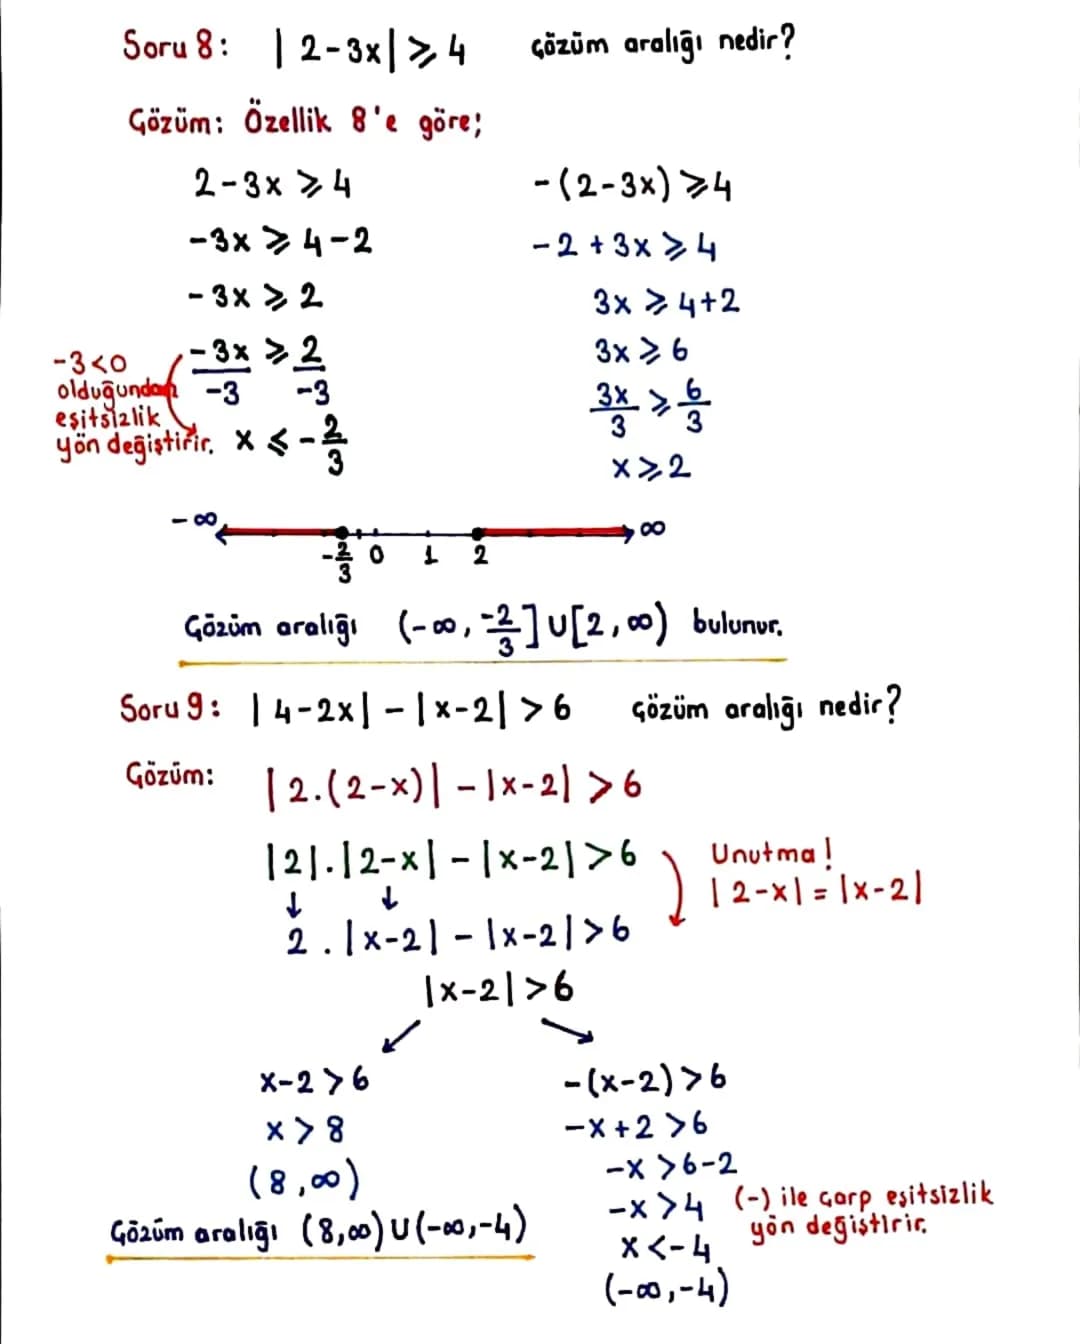 Soru 8: | 2-3x| ⩾ 4 çözüm aralığı nedir?
Çözüm: Özellik 8'e göre;
2-3x ⩾ 4
-3x ⩾ 4-2
-3x ⩾ 2
-3x/-3 ⩾ 2/-3
-3<0
olduğundan
eşitsizlik
yön değiştirir.
x ⩽ -2/3
-(2-3x) ⩾4
-2 + 3x ⩾ 4
3x ⩾ 4+2
3x ⩾ 6
3x/3 ⩾ 6/3
x ⩾ 2
-∞ ∞
-2/3 0 1 2
Çözüm aralığı (-∞, -2/3] ∪ [2, ∞) bulunur.
Soru 9: | 4-2x| - |x-2| > 6 çözüm aralığı nedir?
Çözüm: | 2.(2-x)| - |x-2| > 6
|2|.|2-x| - |x-2| > 6
Unutma!
| 2-x| = |x-2|
↓ ↓
2 . |x-2| - |x-2| > 6
|x-2| > 6
x-2 > 6
x > 8
(8,∞)
Çözüm aralığı (8,∞) ∪ (-∞,-4)
-(x-2) > 6
-x+2 > 6
-x > 6-2
-x > 4
(-) ile çarp eşitsizlik
yön değiştirir.
x < -4
(-∞,-4)